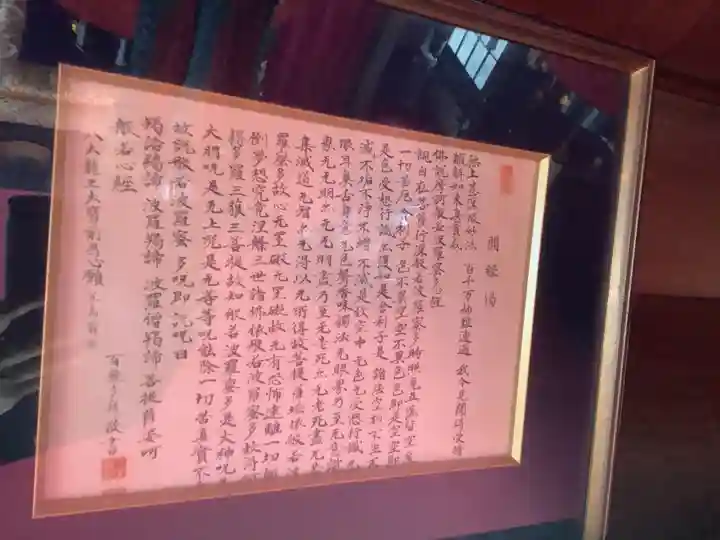 開経偈
無上甚深微妙法 百千万劫難遭遇 我今見聞得受持
願解如来真実義
佛説摩訶般若波羅蜜多心経
観自在菩薩行深般若波羅蜜多時照見五蘊皆空度
一切苦厄舎利子色不異空空不異色色即是空空即
是色受想行識亦復如是舎利子是諸法空相不生不
滅不垢不浄不増不減是故空中无色无受想行識无
眼耳鼻舌身意无色聲香味觸法无眼界乃至无意識
界无无明亦无无明盡乃至无老死亦无老死盡无苦
集滅道无智亦无得以无所得故菩提薩埵依般若波
羅蜜多故心无罣礙无罣礙故无有恐怖遠離一切顛
倒夢想究竟涅槃三世諸佛依般若波羅蜜多故得阿
耨多羅三藐三菩提故知般若波羅蜜多是大神呪是
大明呪是无上呪是无等等呪能除一切苦真實不
故説般若波羅蜜多呪即説呪曰
羯諦羯諦 波羅羯諦 波羅僧羯諦 菩提薩婆呵
般若心經
八大龍王大寶 心願
敬書